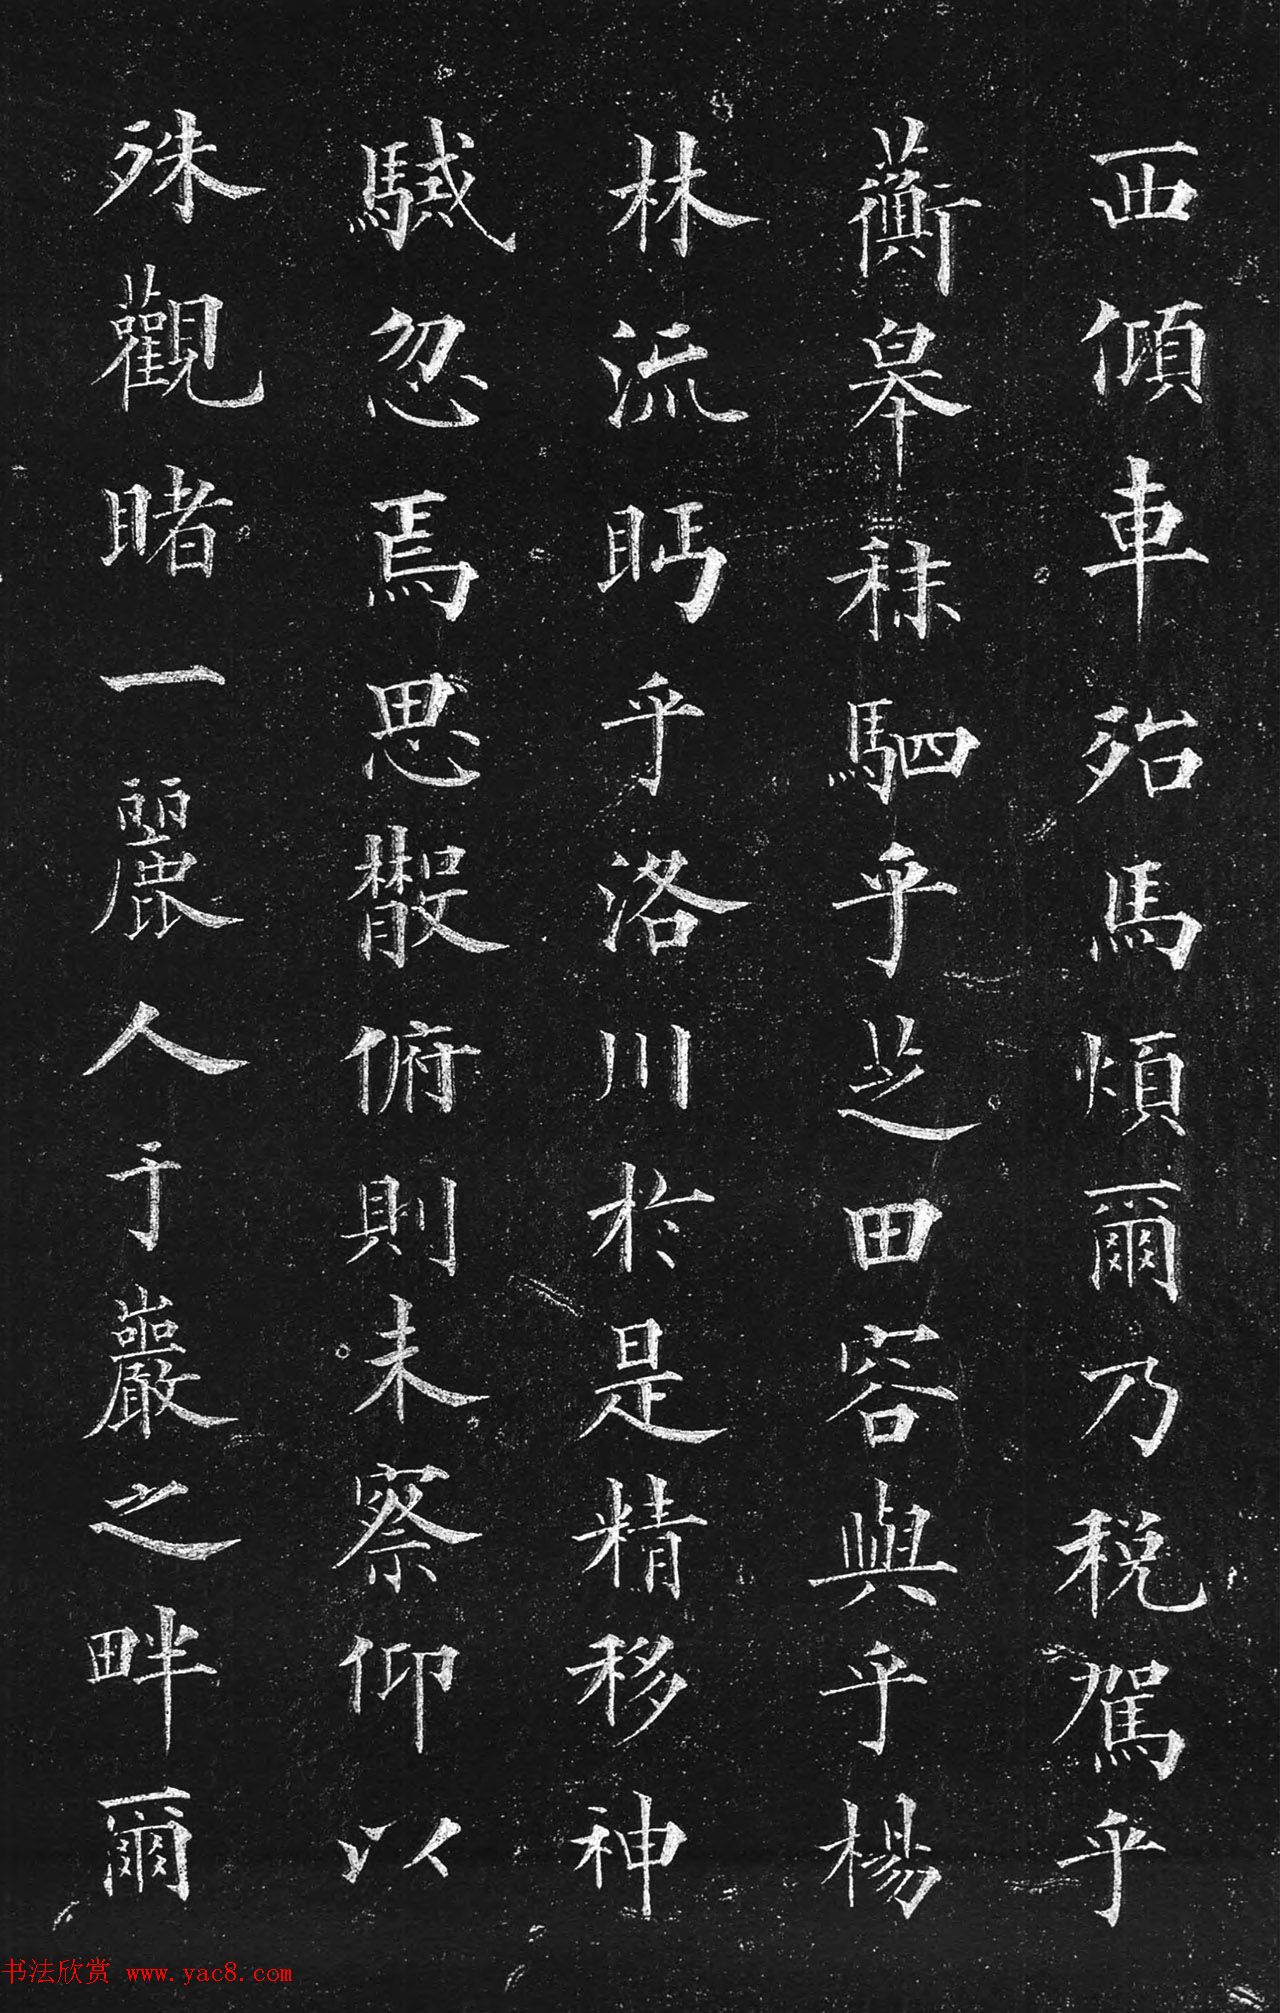 西傾車殆馬煩爾乃稅駕乎
蘅皋秣駟乎芝田容與乎楊
林流眄乎洛川於是精移神
駴忽焉思散俯則未察仰以
殊觀睹一麗人于巖之畔爾
书法欣赏 www.yac8.com